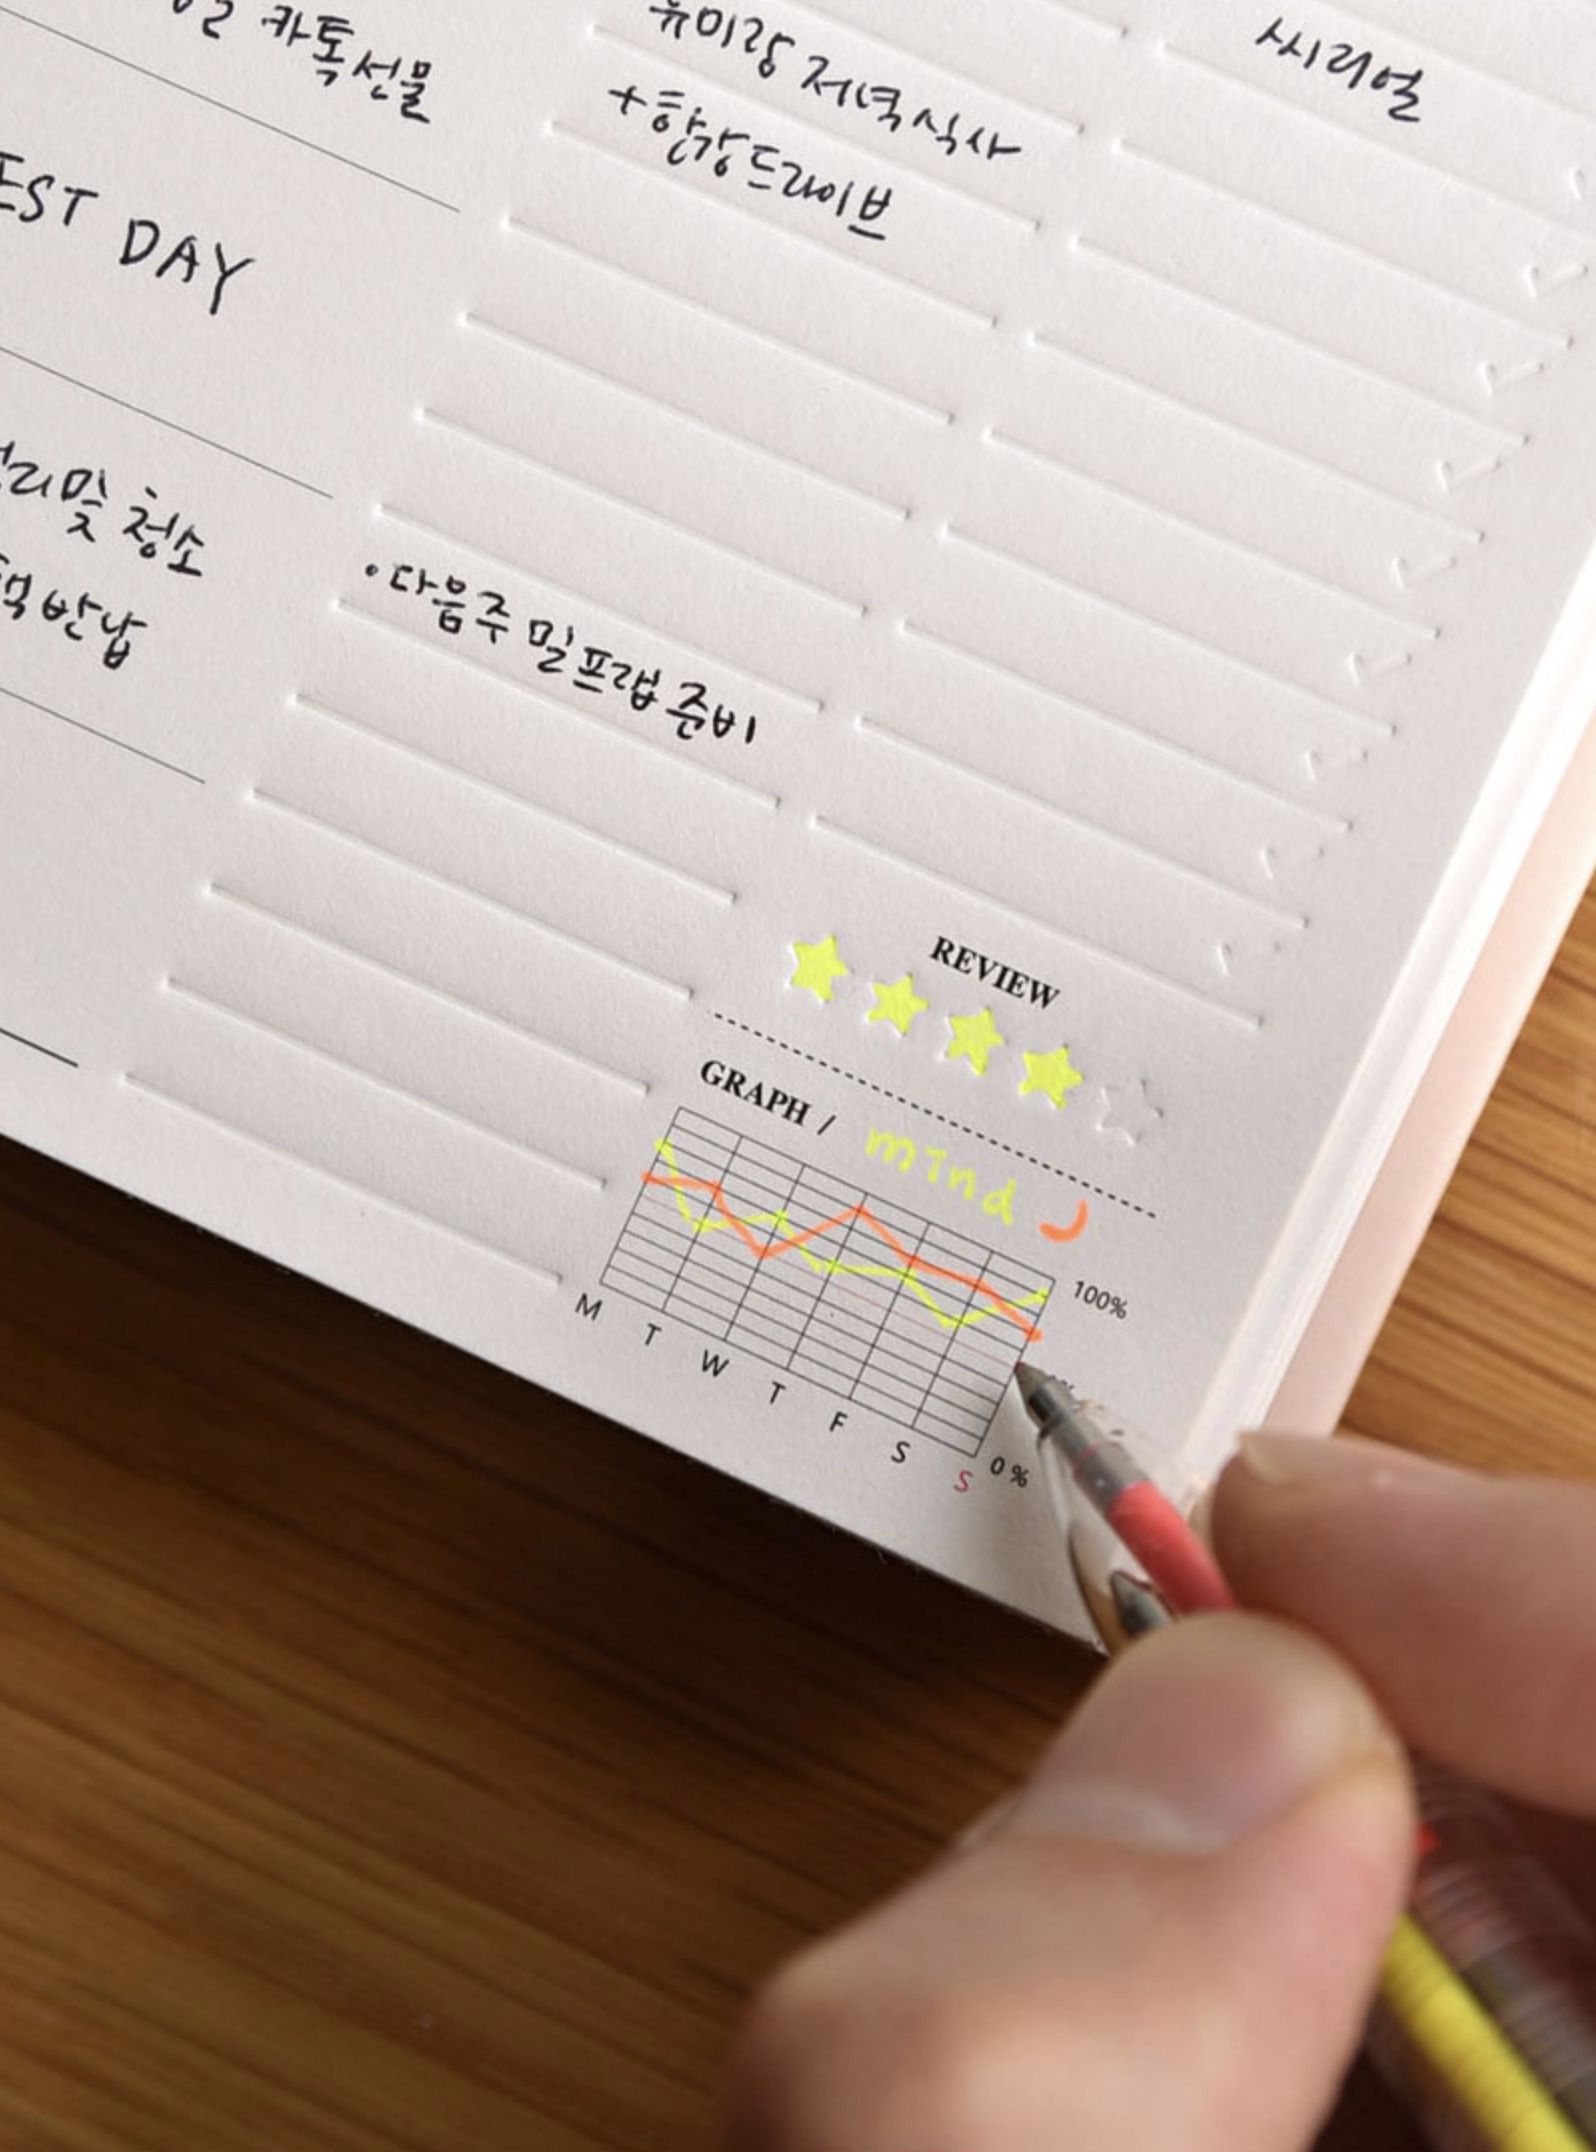 카톡선물
유미랑 저녁식사
+한강드라이브
씨리얼
DAY
및 청소
반납
• 다음주 밀프랩 준비
REVIEW
GRAPH / mind
100%
0%
M T W T F S S